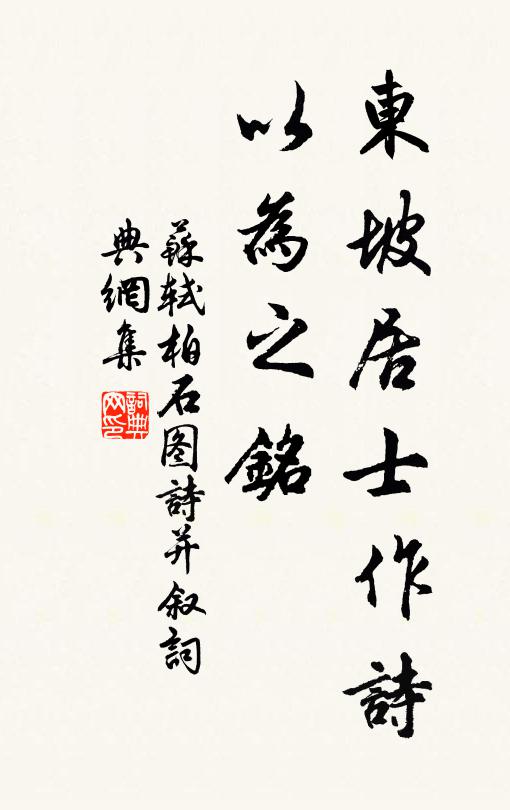 東坡居士作詩
以為之銘
蘇軾柏石图詩并叙詞
典網集
詞典网印